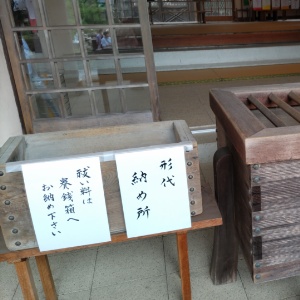 形代
納め所
祓い料は
賽銭箱へ
お納め下さい